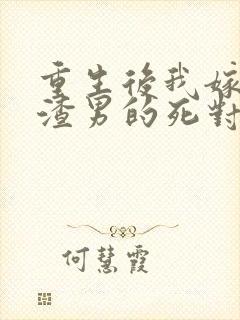 重生後我嫁
渣男的死對
何慧霞